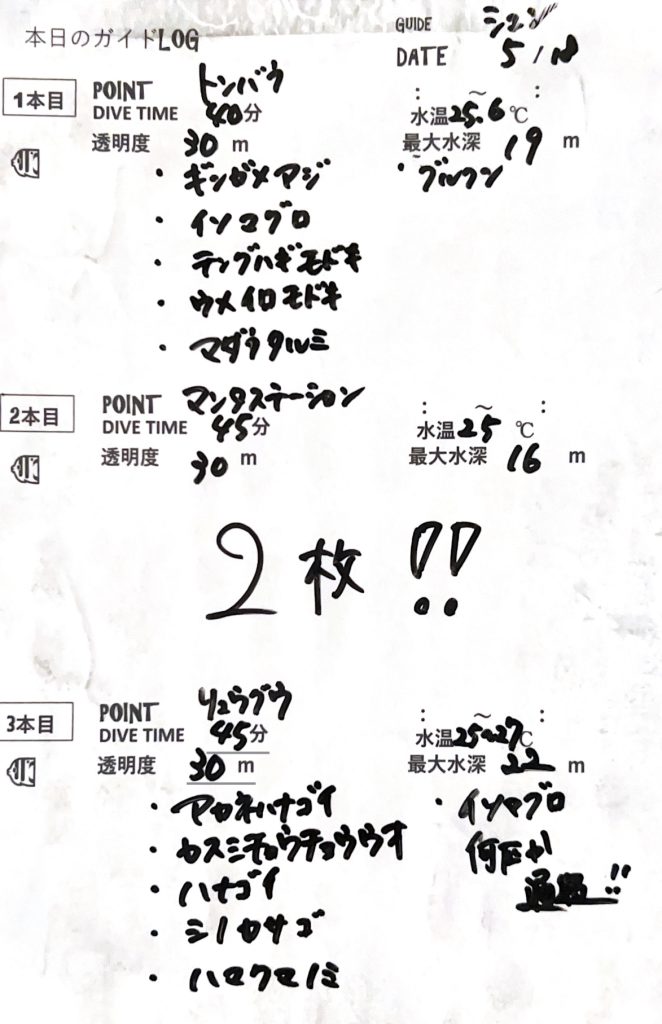 本日のガイドLOG
GUIDE シュン
DATE 5/18
1本目
POINT トンバラ
DIVE TIME 40分
: ～ :
水温25.6℃
透明度 30 m
最大水深 19 m
・ギンガメアジ
・ブルワン
・イソマグロ
・テングハギモドキ
・ウメイロモドキ
・マダラタルミ
2本目
POINT マンタステーション
DIVE TIME 45分
: ～ :
水温25 ℃
透明度 30 m
最大水深 16 m
2枚!!
3本目
POINT リュウグウ
DIVE TIME 45分
: ～ :
水温25～27℃
透明度 30 m
最大水深 22 m
・アカネハナゴイ
・イソマグロ
・カスミチョウチョウウオ
何匹か
・ハナゴイ
通過!!
・ミノカサゴ
・ハマクマノミ